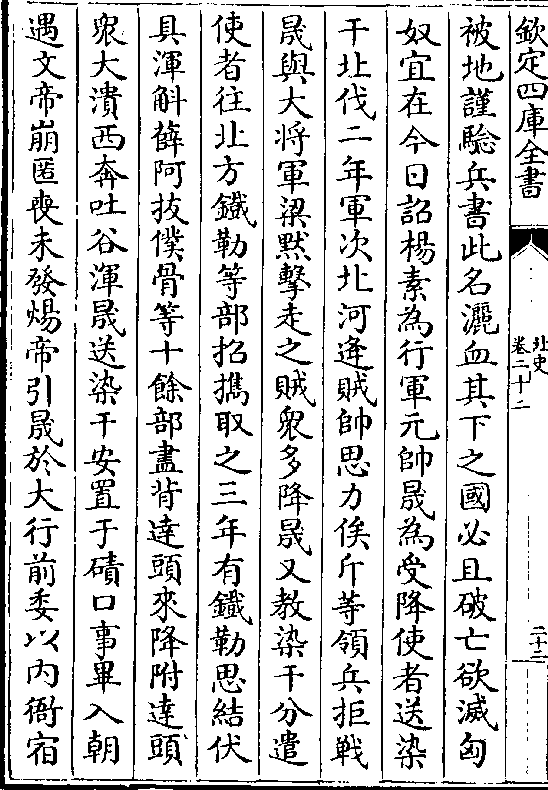 欽定四庫全書
北史
卷二十二
二十二
被地謹驗兵書此名灑血其下之國必且破亡欲滅匈
奴宜在今日詔楊素為行軍元帥晟為受降使者送染
干北伐二年軍次北河逄賊帥思力俟斤等領兵拒戰
晟與大將軍梁黙擊走之賊衆多降晟又教染干分遣
使者往北方鐵勒等部招攜取之三年有鐵勒思結伏
具渾斛薛阿拔僕骨等十餘部盡背達頭來降附達頭
衆大潰西奔吐谷渾晟送染干安置于磧口事畢入朝
遇文帝崩匿喪未發煬帝引晟於大行前委以内衙宿